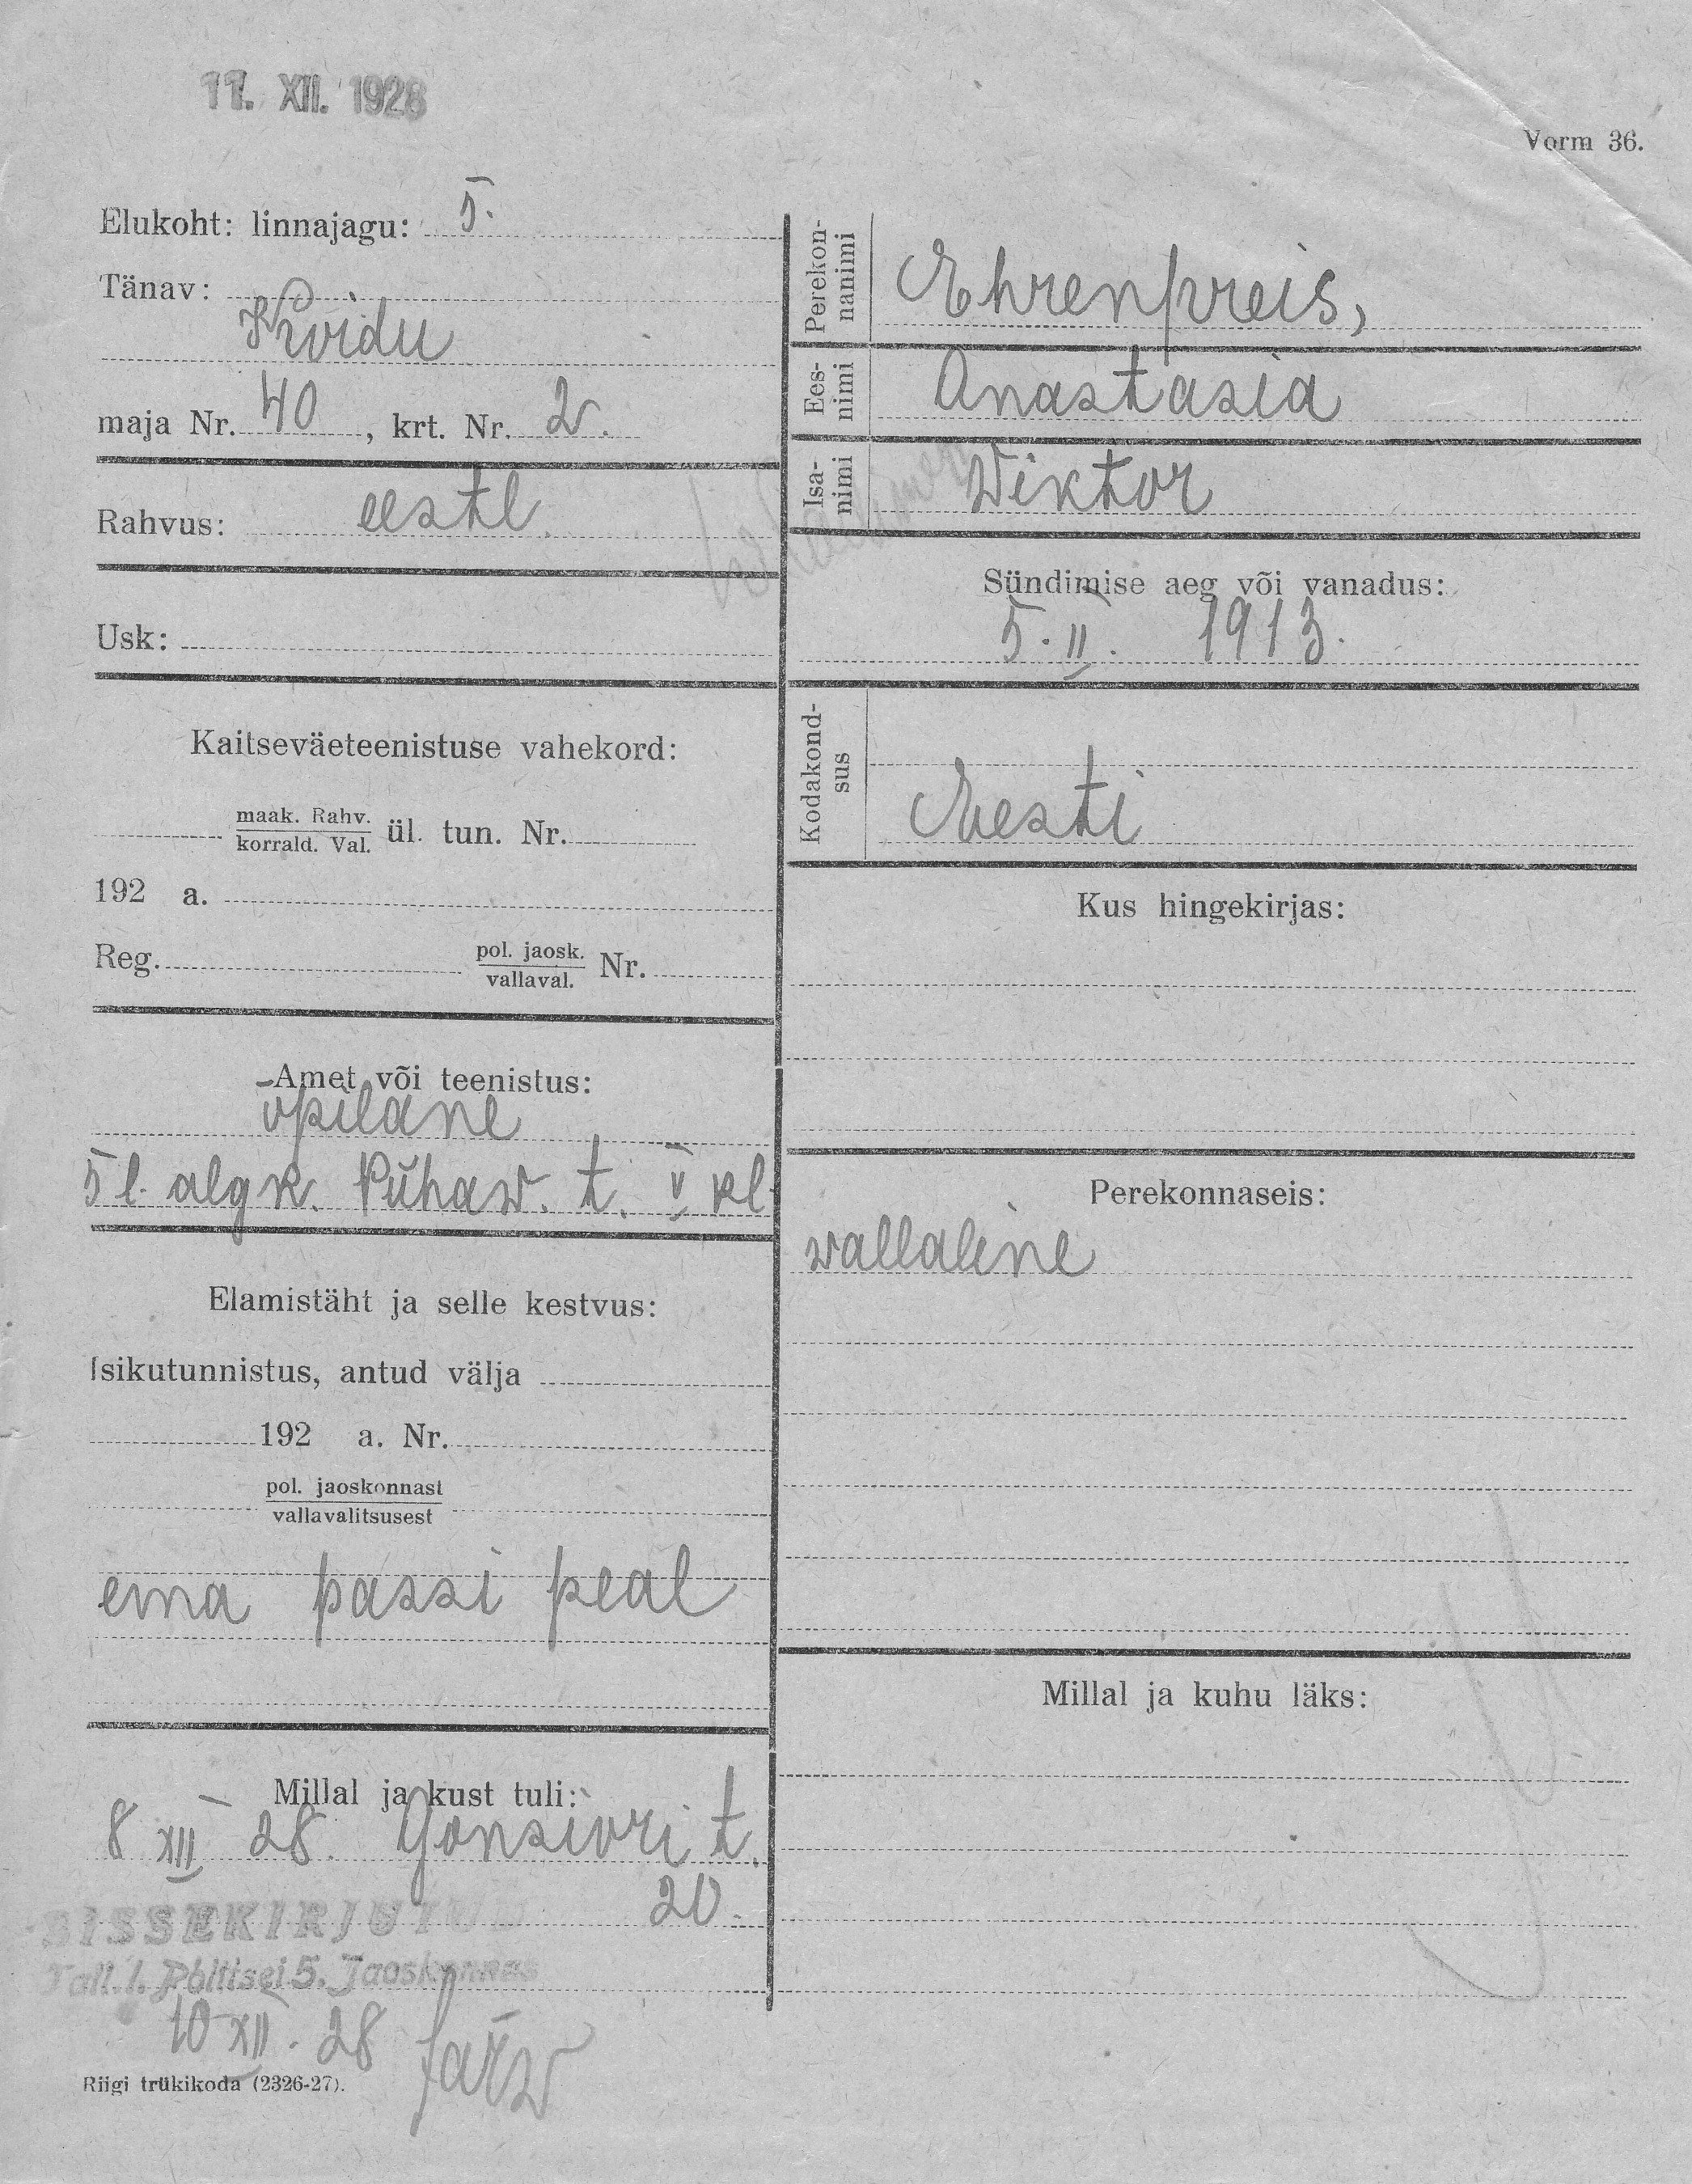 11. XII. 1928
Vorm 36.
Elukoht: linnajagu: 5.
Tänav:
Koidu
maja Nr. 40, krt. Nr. 2.
Rahvus: eestl.
Usk:
Kaitseväeteenistuse vahekord:
maak. Rahv.
korrald. Val. ül. tun. Nr.
192 a.
Reg. pol. jaosk.
vallaval. Nr.
Amet või teenistus:
õpilane
5 l. algk. Pühaw. t. V kl.
Elamistäht ja selle kestvus:
Isikutunnistus, antud välja
192 a. Nr.
pol. jaoskonnast
vallavalitsusest
ema passi peal
Millal ja kust tuli:
8 XII 28. Gonsiori t.
20.
SISSEKIRJUTUD
Tall. l. Politsei 5. Jaoskonnas
10 XII. 28 Järw
Riigi trükikoda (2326-27).
Perekon-
nanimi
Ehrenpreis,
Ees-
nimi
Anastasia
Isa-
nimi
Wiktor
Sündimise aeg või vanadus:
5. II. 1913.
Kodakond-
sus
Eesti
Kus hingekirjas:
Perekonnaseis:
wallaline
Millal ja kuhu läks: